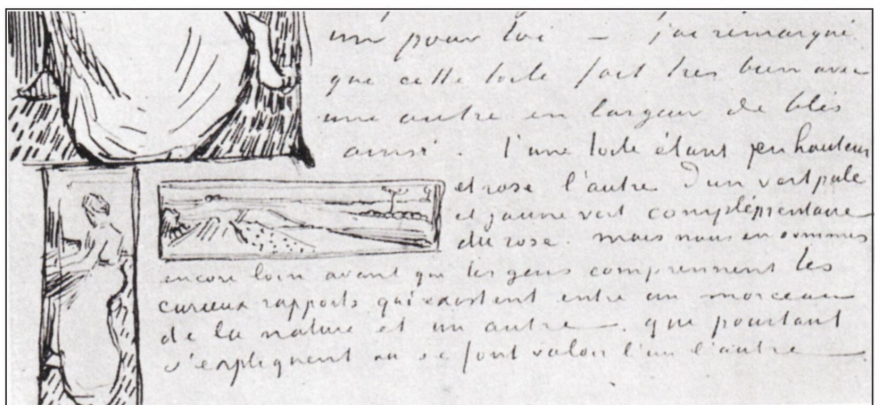 un pour toi — j'ai remarqué
que cette toile fait très bien avec
une autre en largeur de blés
ainsi. l'une toile étant en hauteur
et rose l'autre d'un vert pâle
et jaune vert complémentaire
du rose. mais nous en sommes
encore loin avant que les gens comprennent les
curieux rapports qui existent entre un morceau
de la nature et un autre, que pourtant
s'expliquent ou se font valoir l'un l'autre